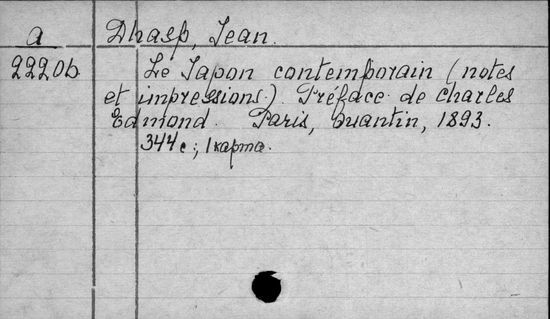 a Dhasp, Jean.
2220b Le Japon contemporain (notes
et impressions). Préface de Charles
Edmond. Paris, Quantin, 1893.
344 c; 1 карта.